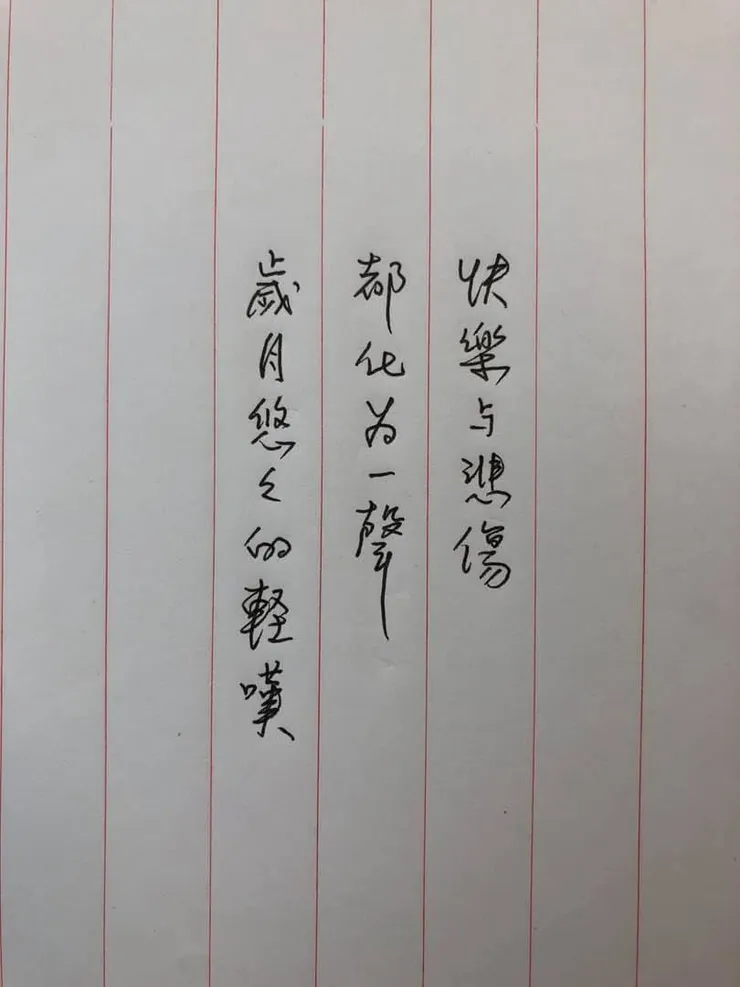 快樂与悲傷
都化为一聲
歲月悠々的軽嘆